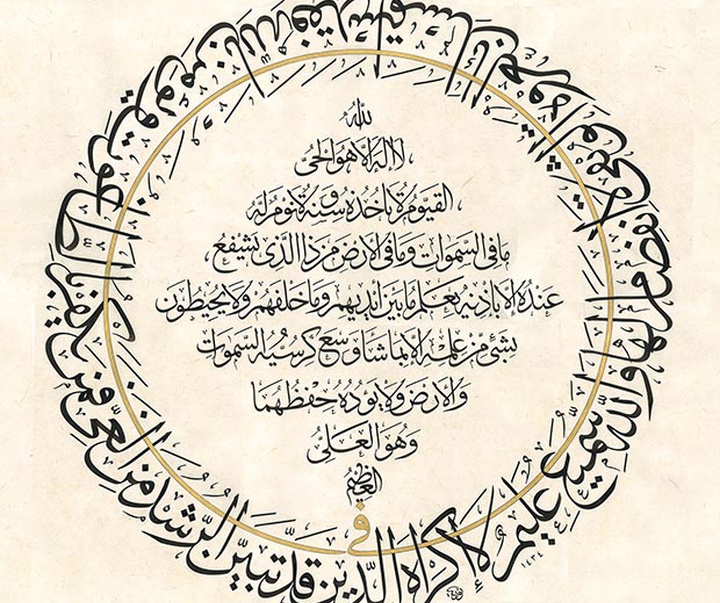 الله
لا اله الا هو الحي
القيوم لا تأخذه سنة ولا نوم له
ما في السموات وما في الارض من ذا الذي يشفع
عنده الا باذنه يعلم ما بين ايديهم وما خلفهم ولا يحيطون
بشئ من علمه الا بما شا وسع كرسيه السموات
والارض ولا يؤده حفظهما
وهو العلي
العظيم
لا اكراه في الدين قد تبين الرشد من الغي فمن يكفر بالطاغوت ويؤمن بالله فقد استمسك بالعروة الوثقى لا انفصام لها والله سميع عليم
١٤٣٤